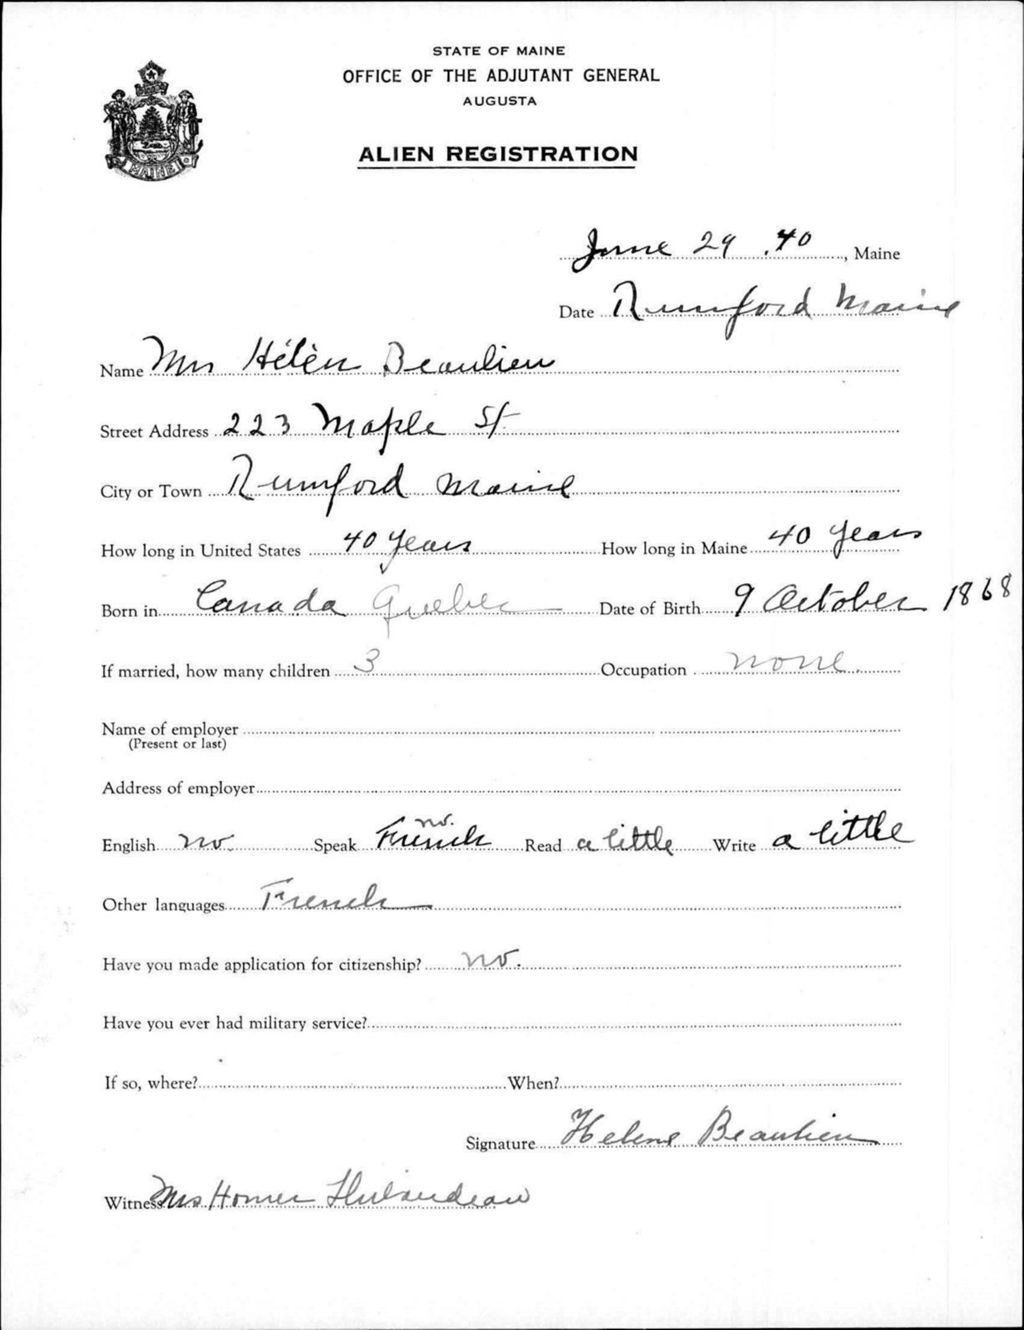 STATE OF MAINE
OFFICE OF THE ADJUTANT GENERAL
AUGUSTA
ALIEN REGISTRATION
MAINE
June 29 .40, Maine
Date Rumford Maine
Name Mrs Hélèn Beaulieu
Street Address 223 Maple St
City or Town Rumford Maine
How long in United States 40 years How long in Maine 40 years
Born in Canada Quebec Date of Birth 9 October 1868
If married, how many children 3 Occupation none.
Name of employer
(Present or last)
Address of employer
English no. Speak French no. Read a little Write a little
Other languages French
Have you made application for citizenship? no.
Have you ever had military service?
If so, where? When?
Signature Helene Beaulieu
Witness Mrs Homer Thibaudeau